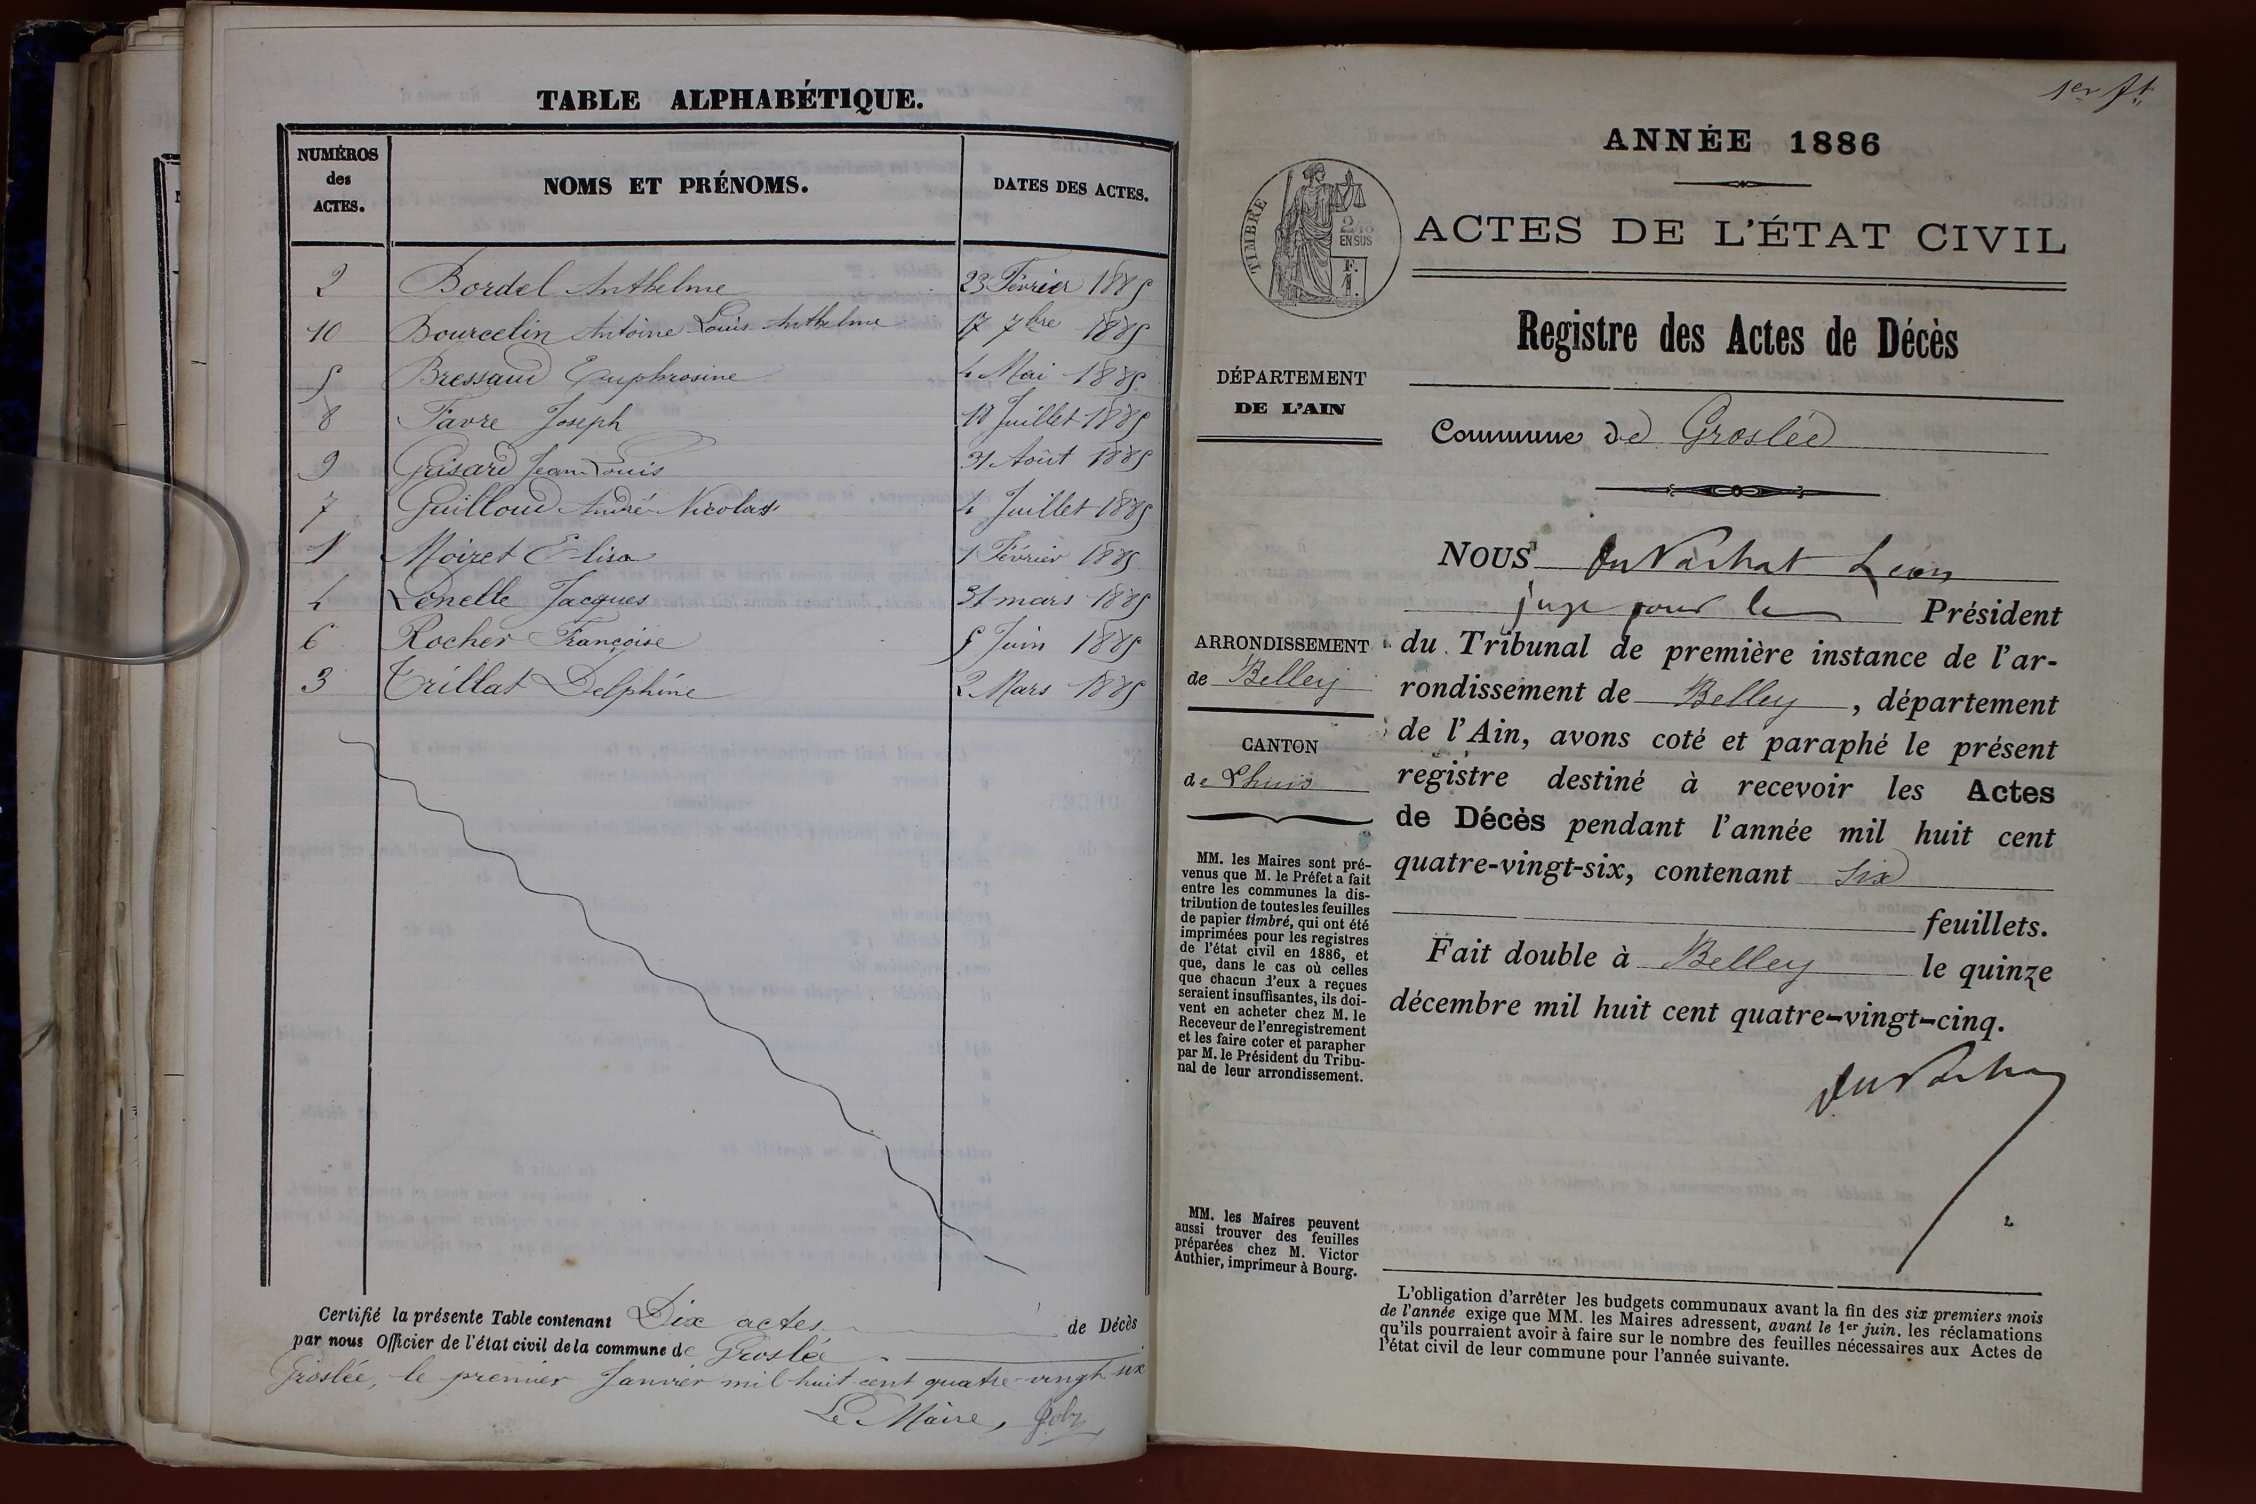 TABLE ALPHABÉTIQUE.
NUMÉROS
des
ACTES.
NOMS ET PRÉNOMS.
DATES DES ACTES.
2 Bordel Anthelme 23 Février 1885
10 Bourcelin Antoine Louis Anthelme 17 7bre 1885
5 Bressaud Euphrosine 4 Mai 1885
8 Favre Joseph 18 Juillet 1885
9 Guisard Jean Louis 31 Août 1885
7 Guilloud André Nicolas 4 Juillet 1885
1 Moizet Elisa 1 Février 1885
4 Penelle Jacques 31 mars 1885
6 Rocher Françoise 5 Juin 1885
3 Trillat Delphine 2 Mars 1885
Certifié la présente Table contenant Dix actes de Décès
par nous Officier de l'état civil de la commune de Groslée
Groslée, le premier Janvier mil huit cent quatre-vingt-six
Le Maire,
1er ft
ANNÉE 1886
TIMBRE
EN SUS
F.
1.
ACTES DE L'ÉTAT CIVIL
Registre des Actes de Décès
DÉPARTEMENT
DE L'AIN
Commune de Groslée
NOUS Du Vachat Léon
juge pour le Président
du Tribunal de première instance de l'ar-
rondissement de Belley, département
de l'Ain, avons coté et paraphé le présent
registre destiné à recevoir les Actes
de Décès pendant l'année mil huit cent
quatre-vingt-six, contenant six
feuillets.
Fait double à Belley le quinze
décembre mil huit cent quatre-vingt-cinq.
Du Vachat
ARRONDISSEMENT
de Belley
CANTON
de Lhuis
MM. les Maires sont pré-
venus que M. le Préfet a fait
entre les communes la dis-
tribution de toutes les feuilles
de papier timbré, qui ont été
imprimées pour les registres
de l'état civil en 1886, et
que, dans le cas où celles
que chacun d'eux a reçues
seraient insuffisantes, ils doi-
vent en acheter chez M. le
Receveur de l'enregistrement
et les faire coter et parapher
par M. le Président du Tribu-
nal de leur arrondissement.
MM. les Maires peuvent
aussi trouver des feuilles
préparées chez M. Victor
Authier, imprimeur à Bourg.
L'obligation d'arrêter les budgets communaux avant la fin des six premiers mois
de l'année exige que MM. les Maires adressent, avant le 1er juin, les réclamations
qu'ils pourraient avoir à faire sur le nombre des feuilles nécessaires aux Actes de
l'état civil de leur commune pour l'année suivante.